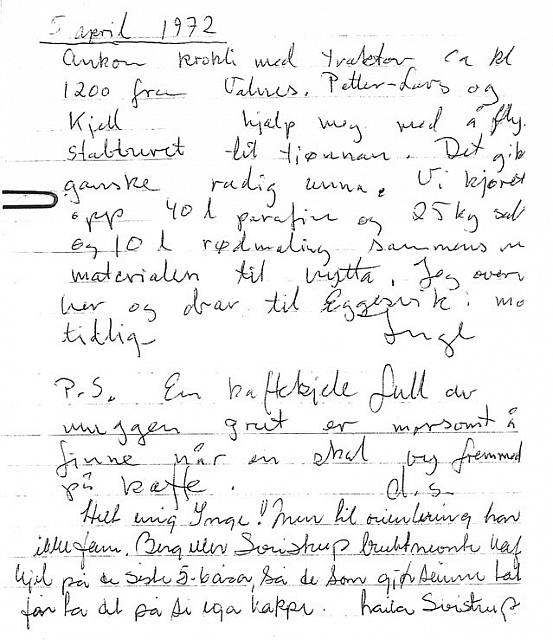 5 april 1972
Ankom krokli med traktor ca kl
1200 fra Valnes. Petter-Lars og
Kjell hjalp meg med å fly.
stabburet til tjønnan. Det gik
ganske radig unna. Vi kjøret
opp 40 l parafin og 25 kg salt
og 10 l rødmaling sammens m
materialen til hytta. Jeg overn
her og drar til Eggesvik i mo
tidlig Inge
P.S. En kaffekjele full av
muggen grut er morsomt å
finne når en skal by fremmed
på kaffe. d.s.
Helt enig Inge! Men til orientering har
ikke fam. Berg eller Sivistrup
på de siste 5 så de som
får ta det på si ega kappe. Sivistrup